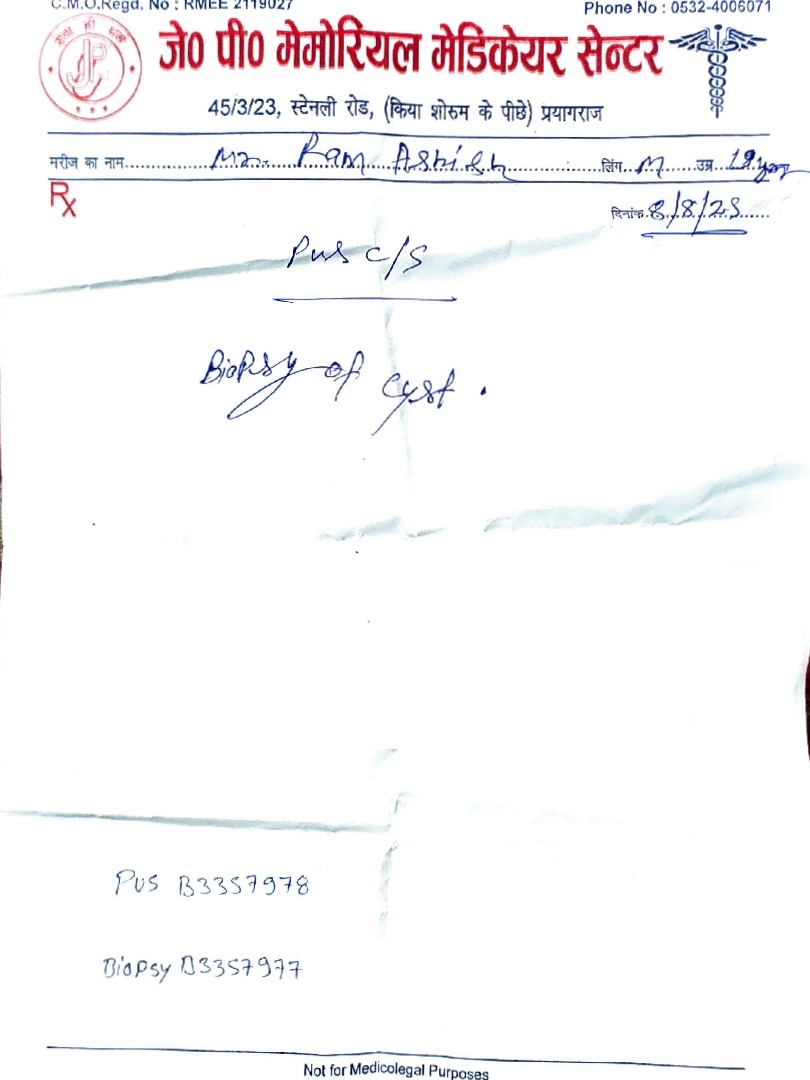 C.M.O.Regd. No : RMEE 2119027 Phone No : 0532-4006071
जे0 पी0 मेमोरियल मेडिकेयर सेन्टर
45/3/23, स्टेनली रोड, (किया शोरुम के पीछे) प्रयागराज
मरीज का नाम Mr. Ram Ashish लिंग M उम्र 19 year
Rx
दिनांक 8/8/25
Pus C/S
Biopsy of cyst.
Pus B3357978
Biopsy B3357977
Not for Medicolegal Purposes